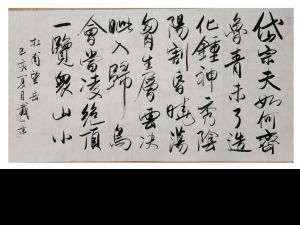 岱宗夫如何齊
魯青未了造
化鍾神秀陰
陽割昏曉蕩
胷生層雲决
眦入歸鳥
會當凌絕頂
一覽衆山小
杜甫望岳
己亥夏月戴